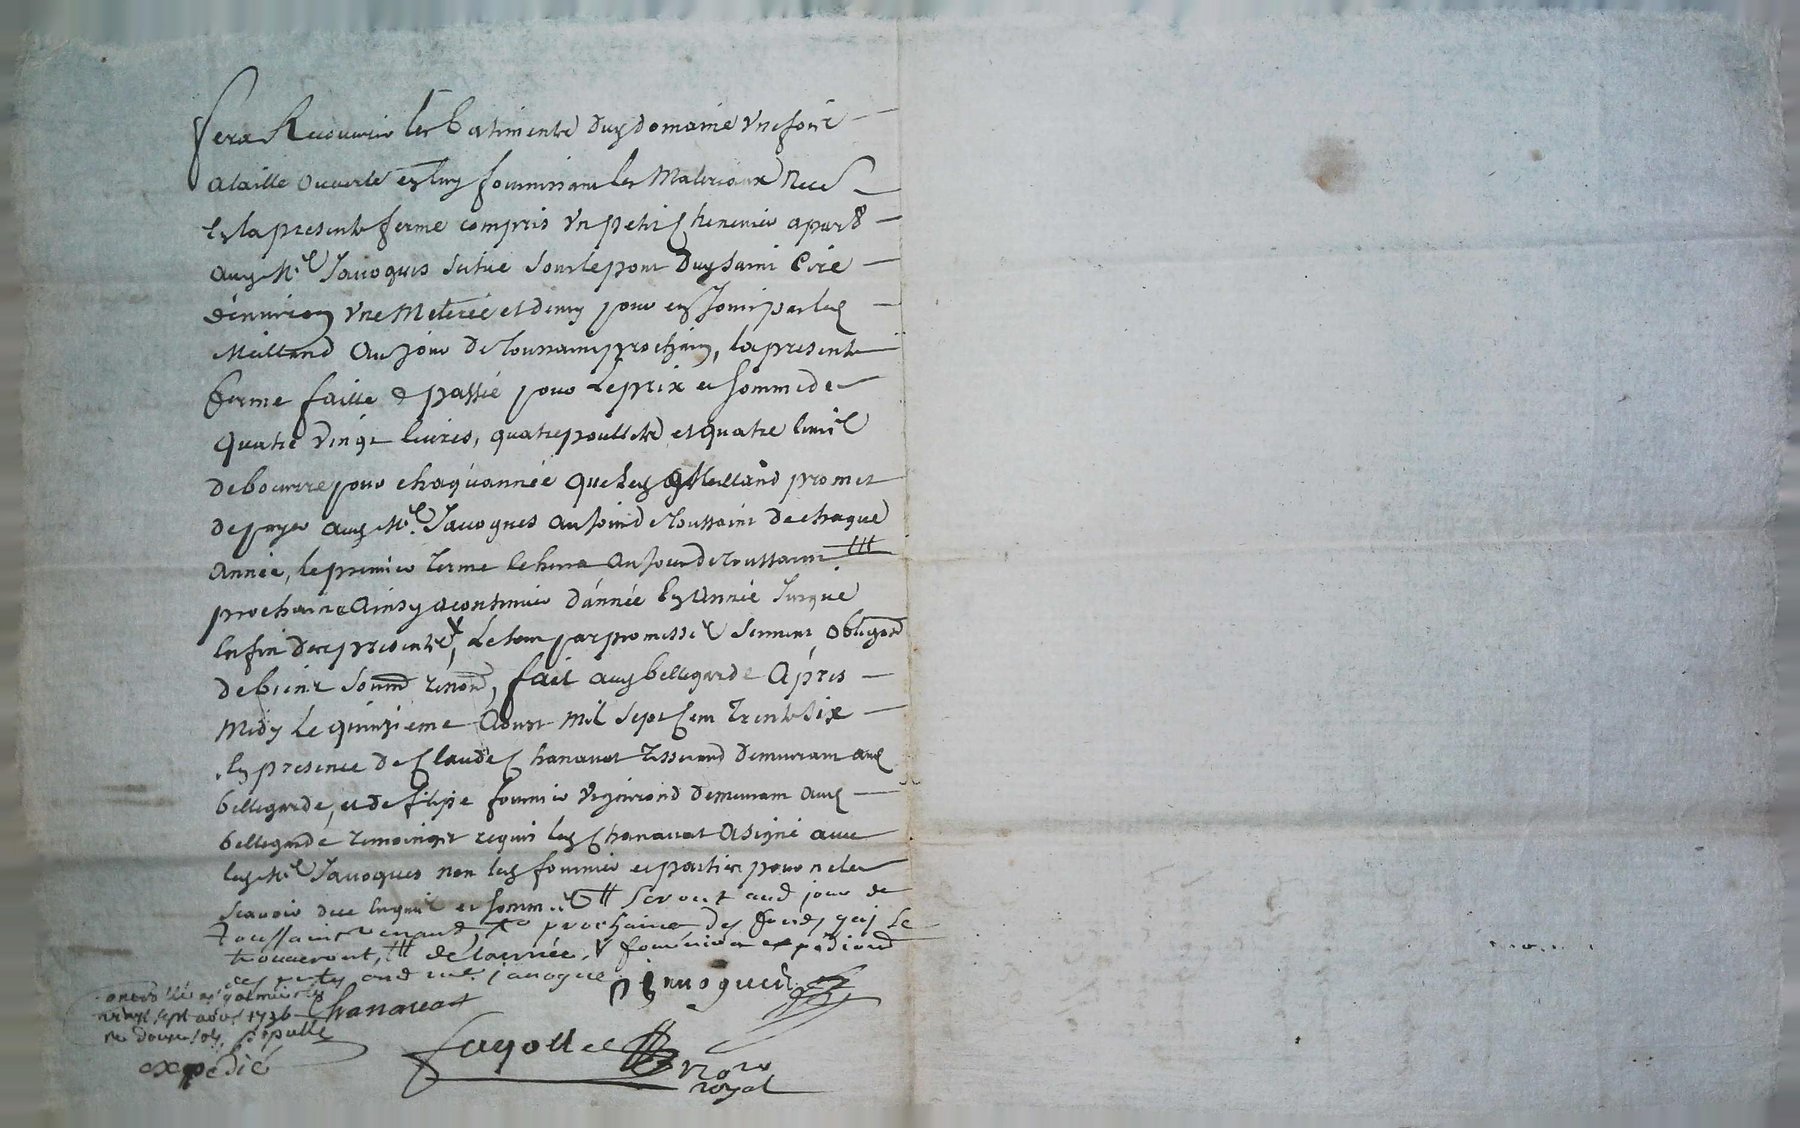 fera Recouvrir les batiments dud domaine une fois
a taille ouverte en luy fournissant les Materiaux neces
En la presente ferme compris un petit chenevier apart
aud Mr Javogues situé sous le pont dud saint Ciré
d'environ une Meterée et demy pour en Jouir par led
Meilland au jour de toussaint prochain, la presente
ferme faitte & passée pour le prix et somme de
quatre vingt livres, quatre poullets et quatre livres
de beurre pour chaqu'année que led Meilland promet
de payer aud Mr Javogues au jour de toussaint de chaque
Année, le premier terme le hera au jour de toussaint
prochain Ainsy a continuer d'année En Année Jusque
En fin des presentes, le tout par promesse serment, obligeon
de biens soumon renon, fait aud bellegarde Après
Midy le quinzieme Aoust Mil sept cent trente six
En presence de Claude Chanavat tisserand demeurant aud
bellegarde, et de filipe fournier vigneron demeurant aud
bellegarde temoings requis led Chanavat a signé avec
led Mr Javogues non led fournier et parties pour ne le
scavoir de ce enquis et somm. seront aud jour de
toussaint venant prochaine des fonds qui se
trouveront, de l'année, fournira expedition
des ptes aud mr. javogue
Javogues
controllé a st galmier le
vingt sept aout 1736 Chanavat
re douze sols
fayolle
expedié
nore
royal